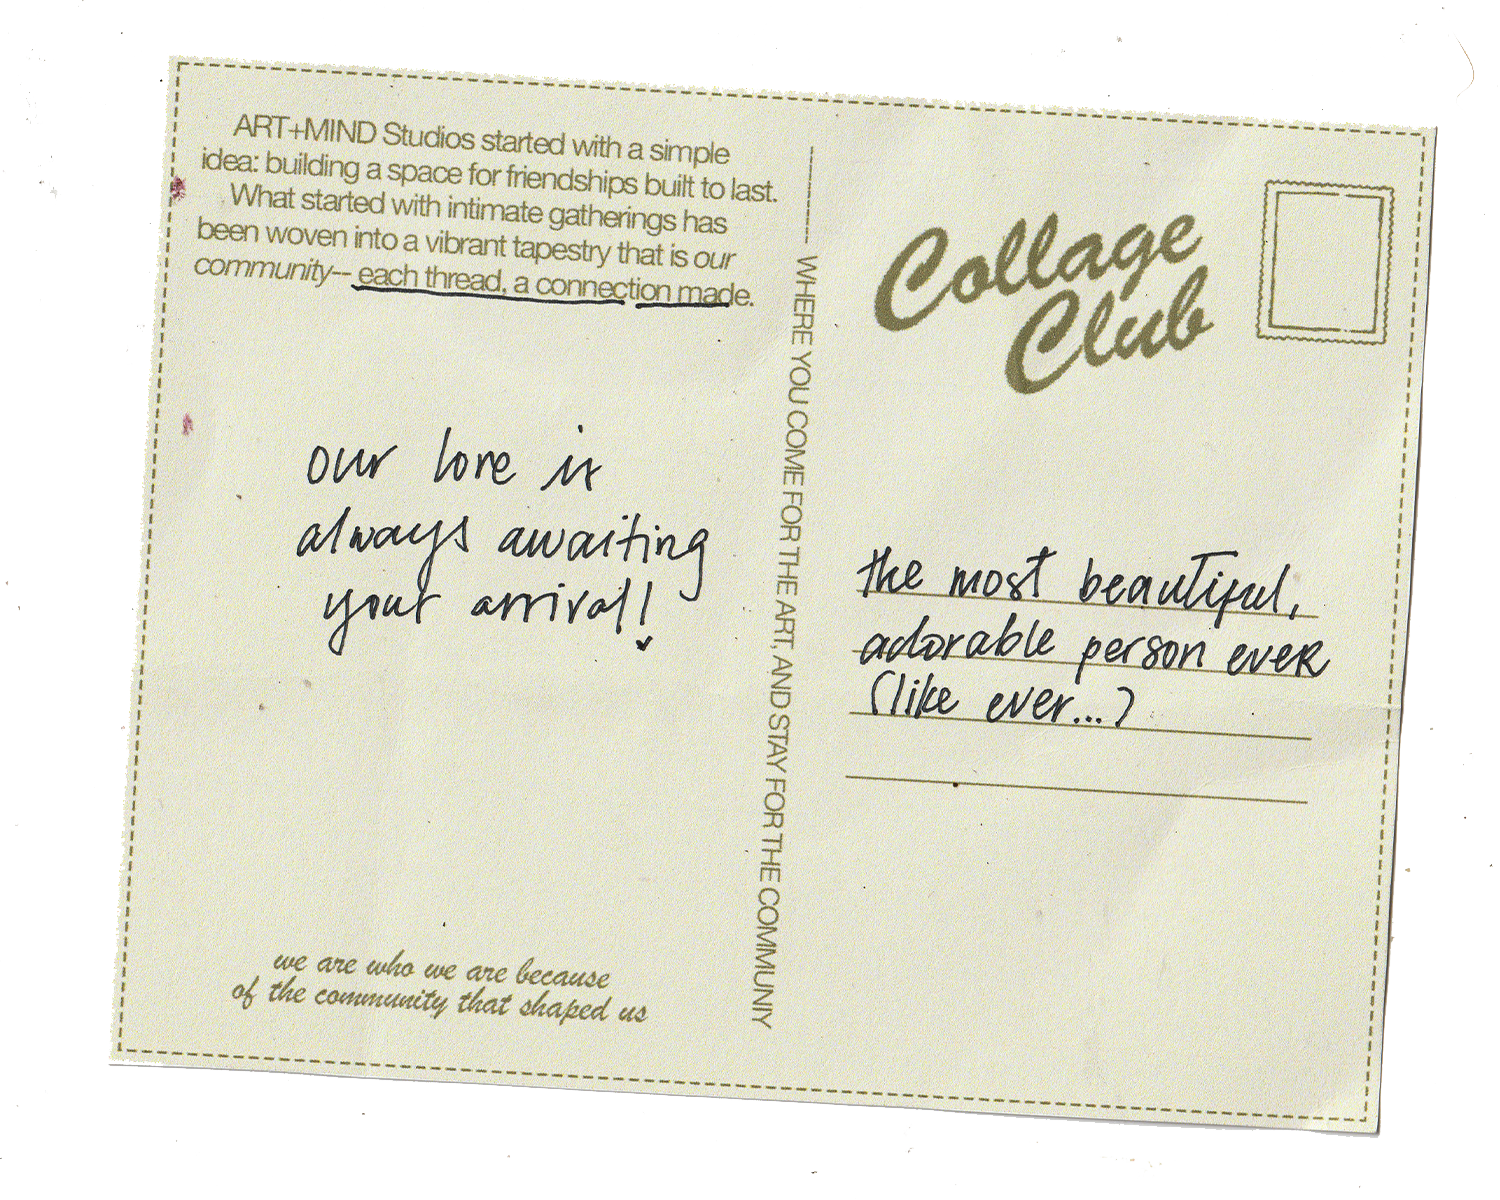 ART+MIND Studios started with a simple
idea: building a space for friendships built to last.
What started with intimate gatherings has
been woven into a vibrant tapestry that is our
community-- each thread, a connection made.
our love is
always awaiting
your arrival!
we are who we are because
of the community that shaped us
WHERE YOU COME FOR THE ART, AND STAY FOR THE COMMUNIY
Collage
Club
the most beautiful,
adorable person ever
(like ever...)